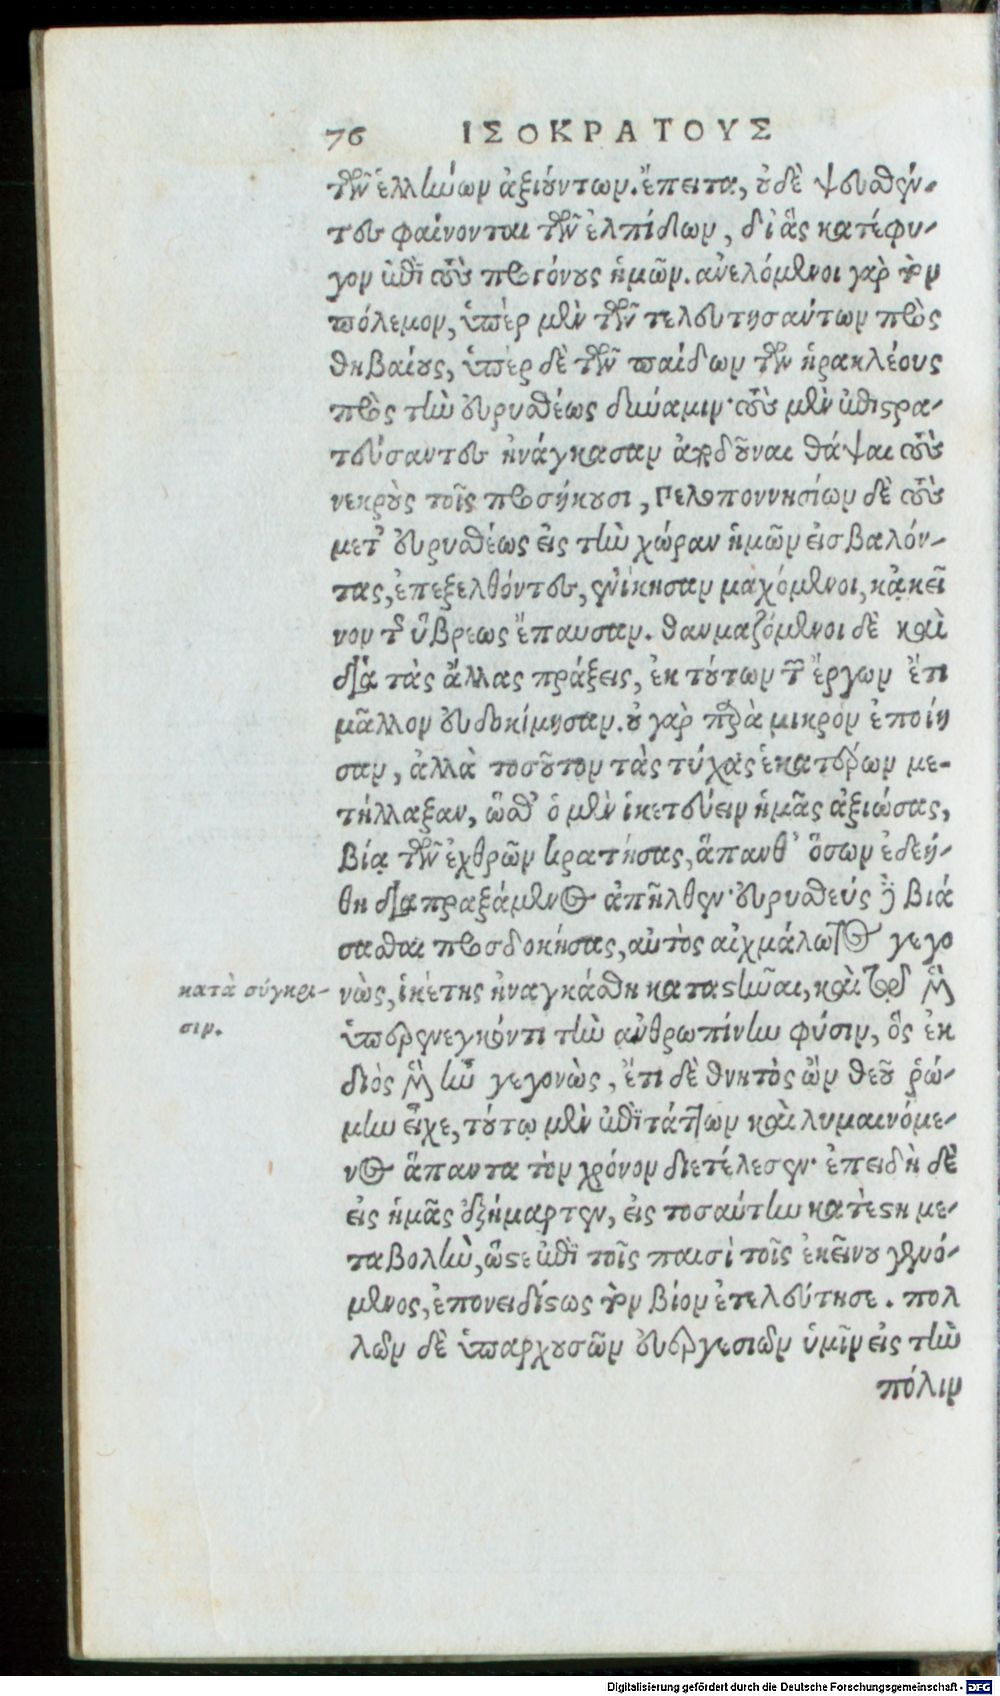 76 ΙΣΟΚΡΑΤΟΥΣ
τῶν ἑλλήνων ἀξιούντων. ἔπειτα, οὐδὲ ψευσθέν-
τες φαίνονται τῶν ἐλπίδων, δι' ἃς κατέφυ-
γον ἐπὶ τοὺς προγόνους ἡμῶν. ἀνελόμενοι γὰρ τὸν
πόλεμον, ὑπὲρ μὲν τῶν τελευτησάντων πρὸς
θηβαίους, ὑπὲρ δὲ τῶν παίδων τῶν ἡρακλέους
πρὸς τὴν εὐρυσθέως δύναμιν· τοὺς μὲν ἐπιστρα-
τεύσαντες ἠνάγκασαν ἀποδοῦναι θάψαι τοὺς
νεκροὺς τοῖς προσήκουσι, Πελοποννησίων δὲ τοὺς
μετ' εὐρυσθέως εἰς τὴν χώραν ἡμῶν εἰσβαλόν-
τας, ἐπεξελθόντες, ἐνίκησαν μαχόμενοι, κᾀκεῖ
νον τῆς ὕβρεως ἔπαυσαν. θαυμαζόμενοι δὲ καὶ
διὰ τὰς ἄλλας πράξεις, ἐκ τούτων τῶν ἔργων ἔτι
μᾶλλον εὐδοκίμησαν. οὐ γὰρ παρὰ μικρὸν ἐποίη
σαν, ἀλλὰ τοσοῦτον τὰς τύχας ἑκατέρων με-
τήλλαξαν, ὥσθ' ὁ μὲν ἱκετεύειν ἡμᾶς ἀξιώσας,
βίᾳ τῶν ἐχθρῶν κρατήσας, ἅπανθ' ὅσων ἐδεή-
θη διαπραξάμενος ἀπῆλθεν· εὐρυσθεύς δὲ βιά
σασθαι προσδοκήσας, αὐτὸς αἰχμάλωτος γεγο
κατὰ σύγκρι-
σιν.
νὼς, ἱκέτης ἠναγκάσθη καταστῆναι, καὶ τῷ μὲν
ὑπερενεγκόντι τὴν ἀνθρωπίνην φύσιν, ὃς ἐκ
διὸς μὲν ἦν γεγονὼς, ἔτι δὲ θνητὸς ὢν θεοῦ ῥώ-
μην εἶχε, τούτῳ μὲν ἐπιτάττων καὶ λυμαινόμε-
νος ἅπαντα τὸν χρόνον διετέλεσεν· ἐπειδὴ δὲ
εἰς ἡμᾶς ἐξήμαρτεν, εἰς τοσαύτην κατέστη με-
ταβολὴν, ὥστε ἐπὶ τοῖς παισὶ τοῖς ἐκείνου γενό-
μενος, ἐπονειδίστως τὸν βίον ἐτελεύτησε. πολ
λῶν δὲ ὑπαρχουσῶν εὐεργεσιῶν ὑμῖν εἰς τὴν
πόλιν
Digitalisierung gefördert durch die Deutsche Forschungsgemeinschaft - DFG